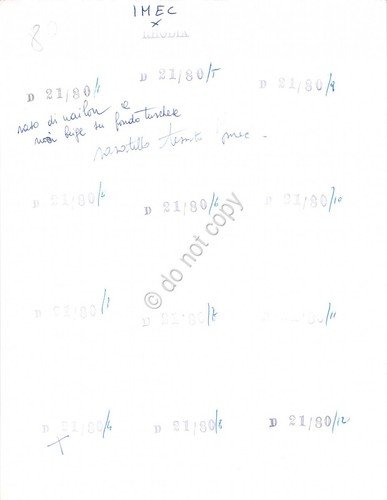 IMEC
x
RHODIA
8
D 21/80/1
D 21/80/5
D 21/80/9
raso di nailon e
noi beige su fondo
imec -
D 21/80/2
D 21/80/6
D 21/80/10
© do not copy
D 21/80/3
D 21/80/7
/11
D 21/80/4
D 21/80/8
D 21/80/12
x